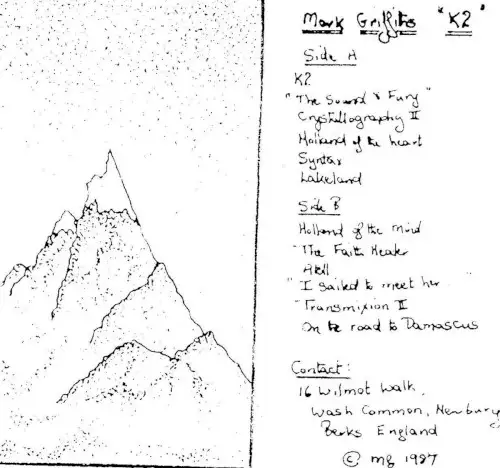 Mark Griffiths "K2"
Side A
K2
"The Sound & Fury"
Crystallography II
Holland of the heart
Syntax
Lakeland
Side B
Holland of the Mind
"The Faith Healer
"I sailed to meet her
"Transmixion II
On the road to Damascus
Contact:
16 Wilmot Walk,
Wash Common, Newbury
Berks England
© mg 1987